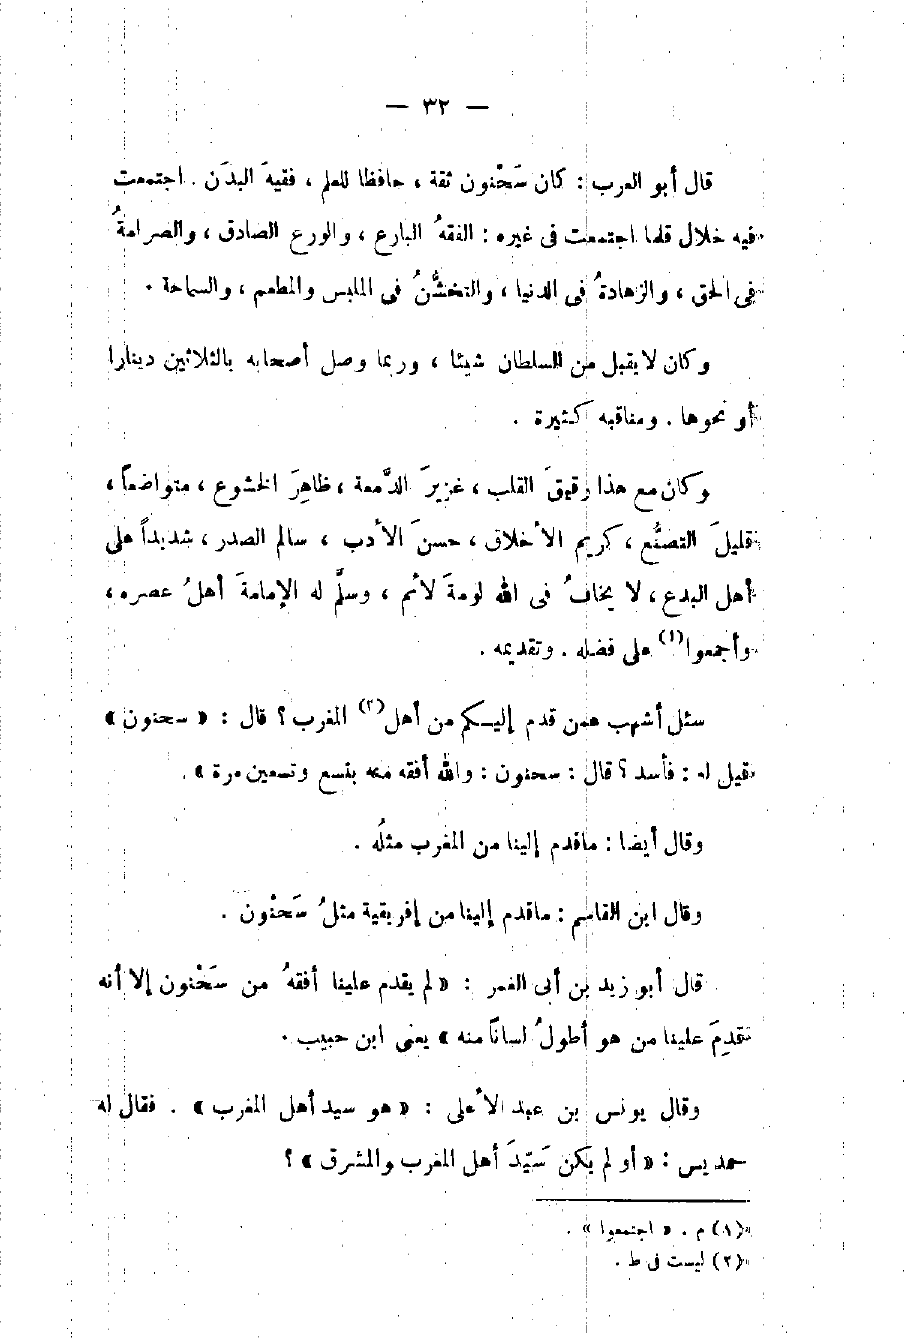 — ٣٢ —
قال أبو العرب : كان سَحْنون ثقة ، حافظا للعلم ، فقيهَ البدَن . اجتمعت
فيه خلال قلما اجتمعت فى غيره : الفقهُ البارع ، والورع الصادق ، والصرامةُ
فى الحق ، والزهادةُ فى الدنيا ، والتخشُّنُ فى الملبس والمطعم ، والسماحة .
وكان لا يقبل من السلطان شيئا ، وربما وصل أصحابه بالثلاثين دينارا
أو نحوها . ومناقبه كثيرة .
وكان مع هذا رقيقَ القلب ، غزيرَ الدَّمعة ، ظاهِرَ الخشوع ، متواضعاً ،
قليلَ التصنُّع ، كريم الأخلاق ، حسنَ الأدب ، سالم الصدر ، شديداً على
أهل البدع ، لا يخافُ فى الله لومةَ لائم ، وسلَّم له الإمامةَ أهلُ عصره ،
وأجمعوا(١) على فضله . وتقديمه .
سئل أشهب عمن قدم إليـكم من أهل(٢) المغرب ؟ قال : « سحنون »
قيل له : فأسد ؟ قال : سحنون : والله أفقه منه بتسع وتسعين مرة » .
وقال أيضا : ماقدم إلينا من المغرب مثلُه .
وقال ابن القاسم : ماقدم إلينا من إفريقية مثلُ سَحنْون .
قال أبو زيد بن أبى الغمر : « لم يقدم علينا أفقهُ من سَحْنون إلا أنه
قدِمَ علينا من هو أطولُ لسانًا منه » يعنى ابن حبيب .
وقال يونس بن عبد الأعلى : « هو سيد أهل المغرب » . فقال له
حمديس : « أو لم يكن سَيّدَ أهل المغرب والمشرق » ؟
(١) م . « اجتمعوا » .
(٢) ليست فى ط .